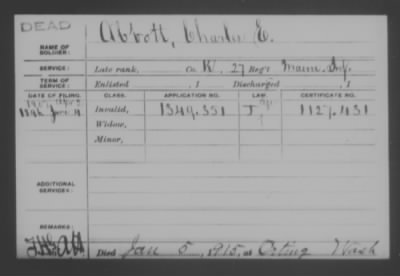 DEAD
NAME OF SOLDIER: Abbott, Charles E.
SERVICE: Late rank, Co. K, 27 Reg't Maine Inf.
TERM OF SERVICE: Enlisted , 1 Discharged , 1
DATE OF FILING. CLASS. APPLICATION NO. LAW. CERTIFICATE NO.
Invalid, 1349.351 1127.431
Widow,
Minor,
ADDITIONAL SERVICES:
REMARKS:
Died Jan 5, 1915, at Orting Wash